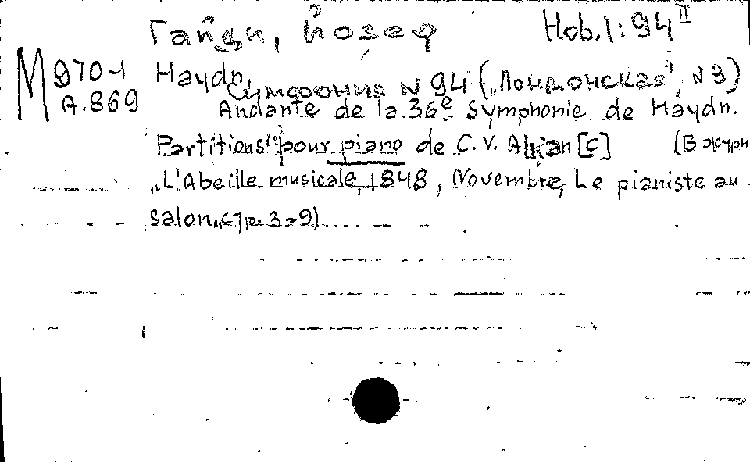 Гайдн, Йозеф Hob.I:94 II
M 970-1
A.869
Haydn,
Симфония N 94 („Лондонская", N 3)
Andante de la 36e Symphonie de Haydn.
Partitions pour piano de C. V. Alkan [C] (В журн
„L'Abeille musicale, 1848, Novembre, Le pianiste au
salon", стр. 3-9)